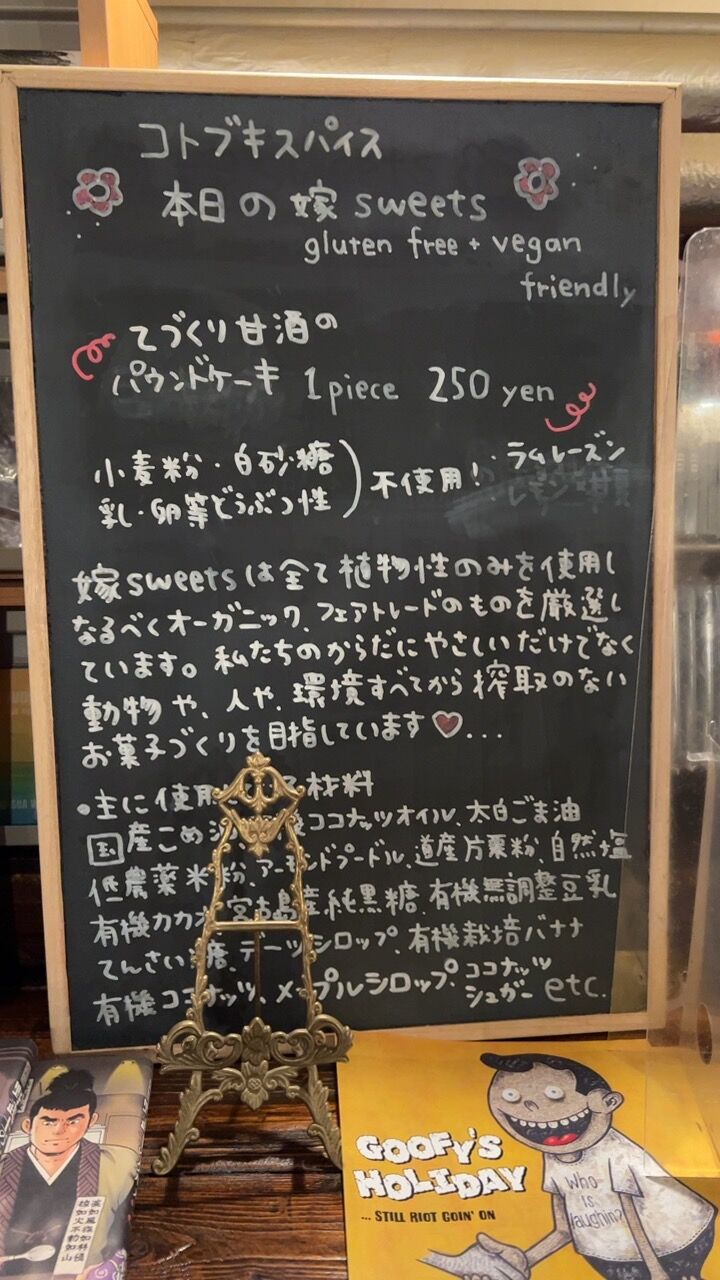 コトブキスパイス
本日の嫁sweets
gluten free + vegan
friendly
てづくり甘酒の
パウンドケーキ 1piece 250 yen
小麦粉・白砂糖
乳・卵等どうぶつ性
不使用!
ラムレーズン
嫁sweetsは全て植物性のみを使用し
なるべくオーガニック、フェアトレードのものを厳選し
ています。私たちのからだにやさしいだけでなく
動物や、人や、環境すべてから搾取のない
お菓子づくりを目指しています♡...
•主に使用 材料
国産こめ ココナッツオイル、太白ごま油
低農薬米粉、アーモンドプードル、道産片栗粉、自然塩
有機カカオ 宮古島産純黒糖、有機無調整豆乳
てんさい糖、デーツシロップ、有機栽培バナナ
有機ココナッツ、メープルシロップ、ココナッツ
シュガー etc.
GOOFY'S
HOLIDAY
... STILL RIOT GOIN' ON
Who
is
laughin?